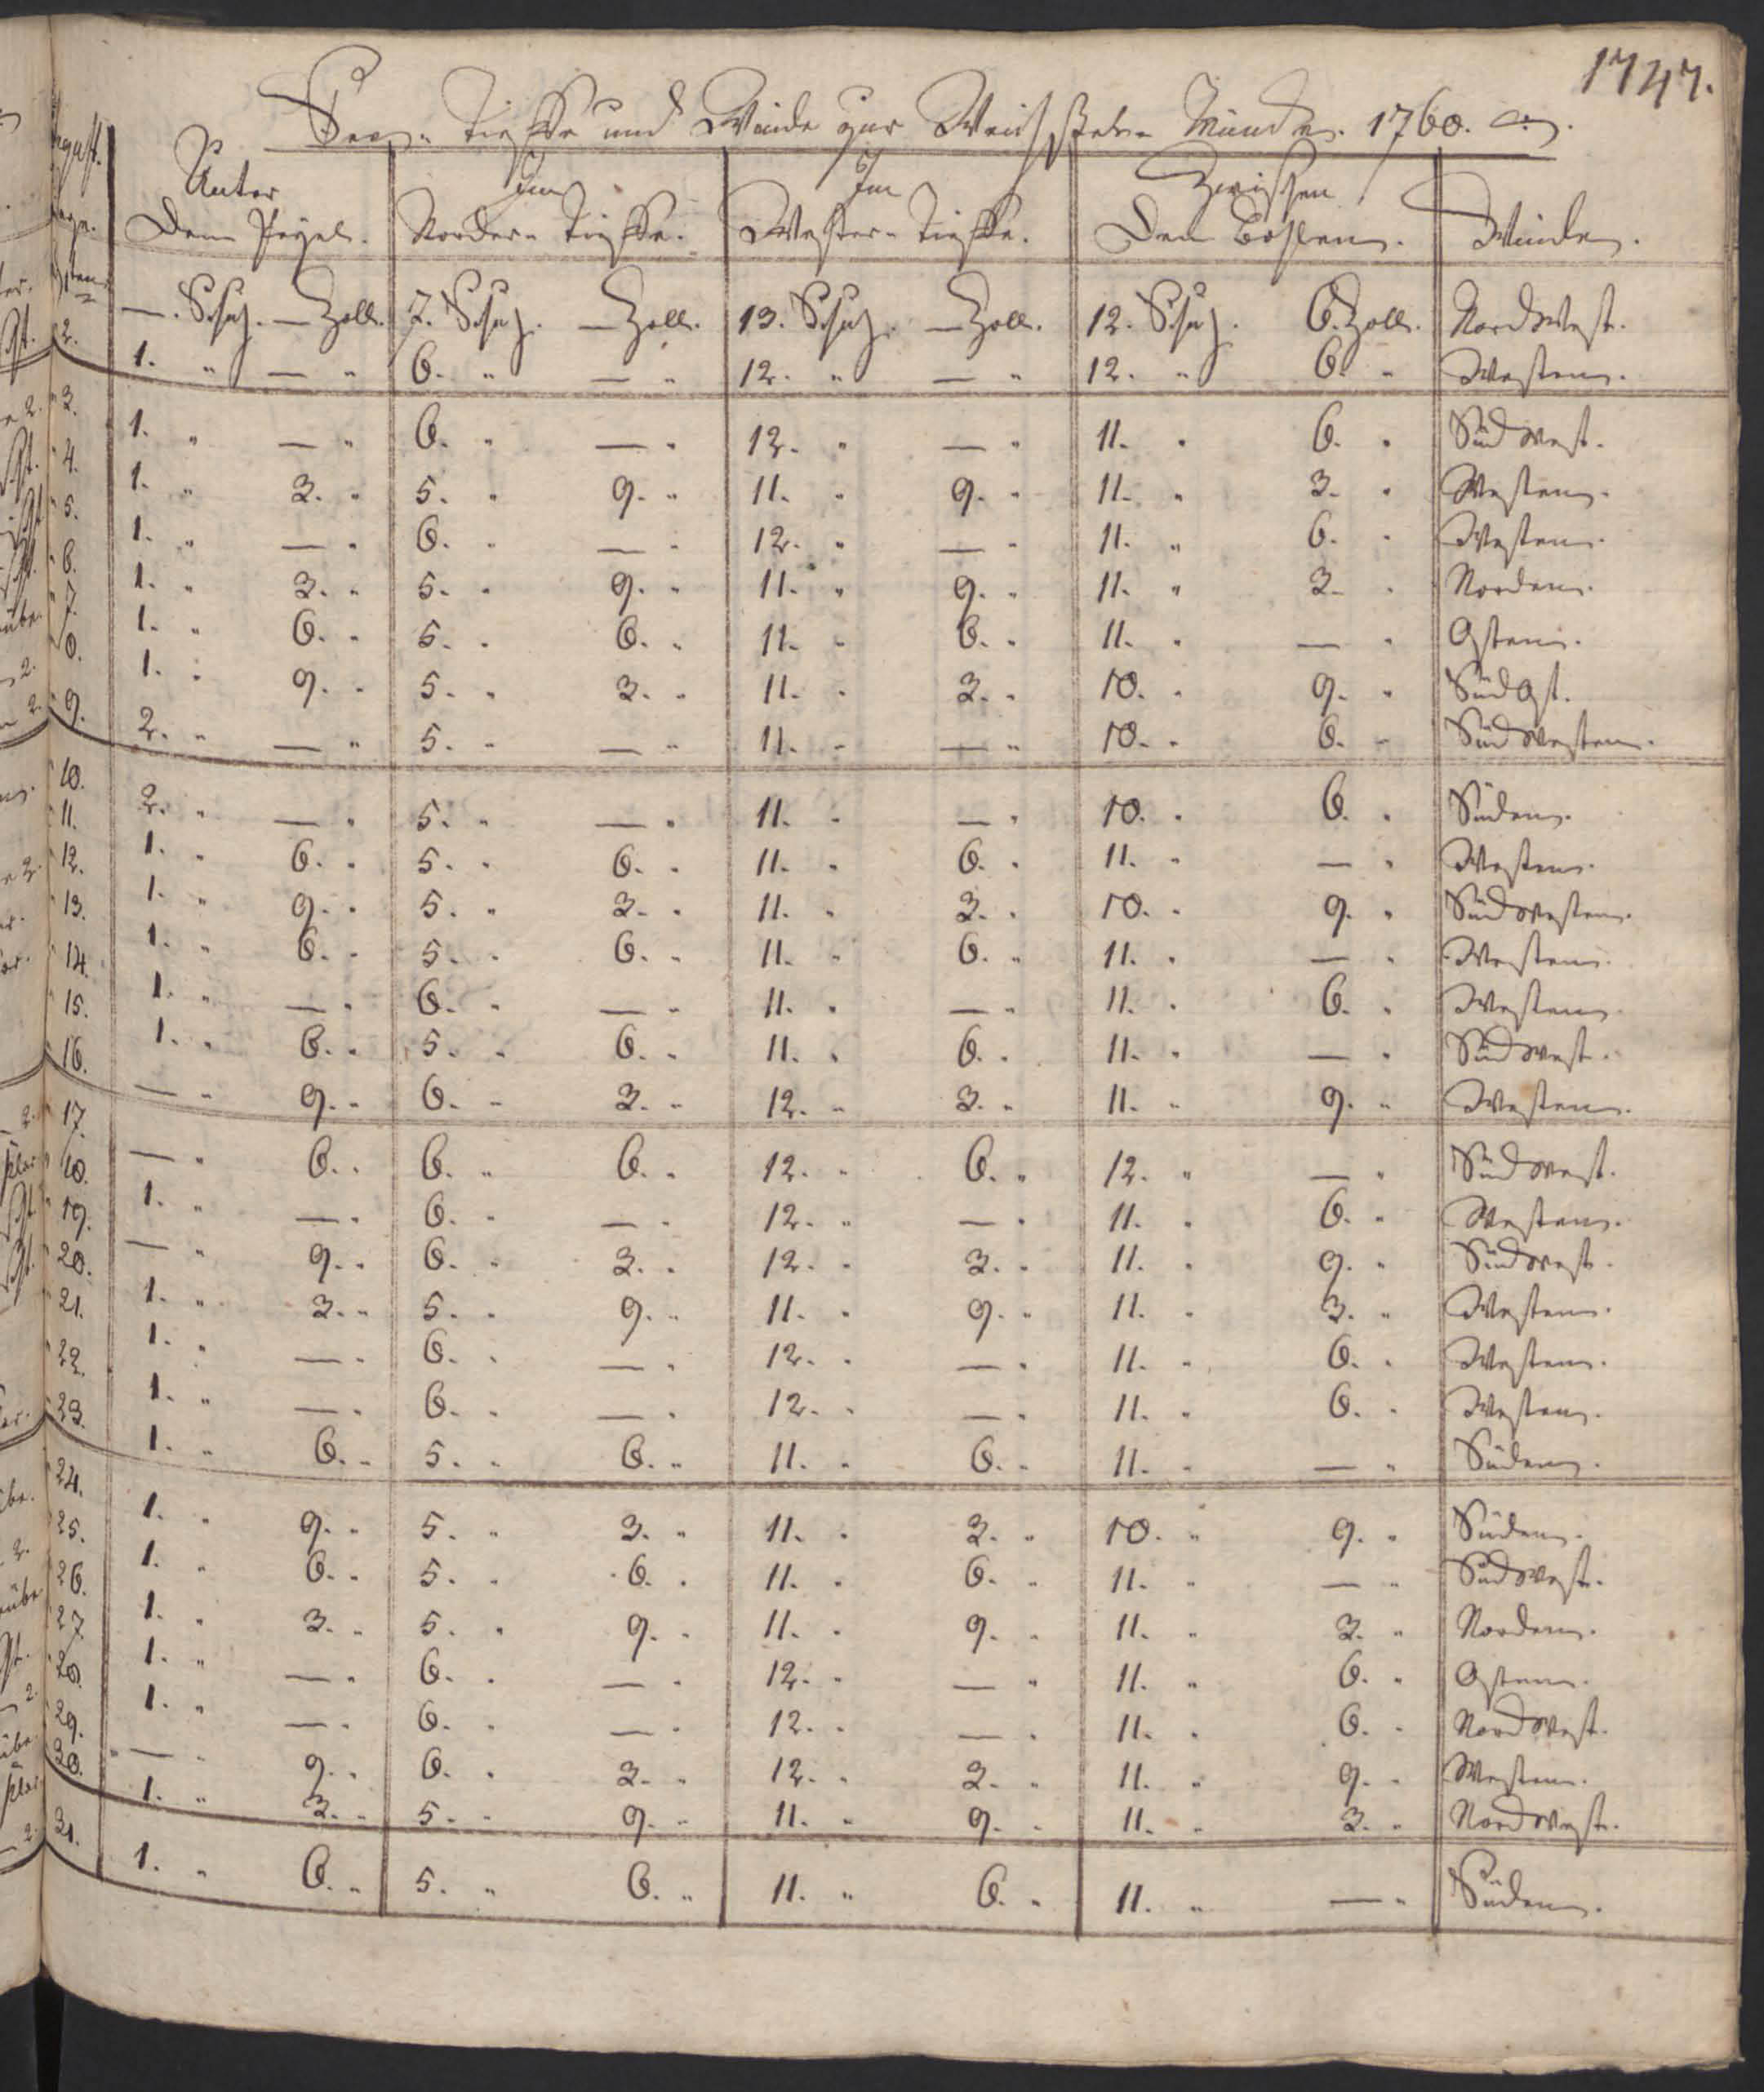 1747.
Seen- Tieffe und Winde zur Weichßel- Münde. 1760.
Unter Dem Pegel. Im Norder- Tieffe. Im Wester- Tieffe. Zwischen Den Bohlen. Winde.
—. Schuh. — Zoll. 7. Schuh. — Zoll. 13. Schuh. — Zoll. 12. Schuh. 6. Zoll. NordWest.
2. 1. " — " 6. " — " 12. " — " 12. " 6. " Westen.
3. 1. " — " 6. " — " 12. " — " 11. " 6. " Südwest.
4. 1. " 3. " 5. " 9. " 11. " 9. " 11. " 3. " Westen.
5. 1. " — " 6. " — " 12. " — " 11. " 6. " Westen.
6. 1. " 3. " 5. " 9. " 11. " 9. " 11. " 3. " Norden.
7. 1. " 6. " 5. " 6. " 11. " 6. " 11. " — " Osten.
8. 1. " 9. " 5. " 3. " 11. " 3. " 10. " 9. " SüdOst.
9. 2. " — " 5. " — " 11. " — " 10. " 6. " SüdWesten.
10. 2. " — " 5. " — " 11. " — " 10. " 6. " Süden.
11. 1. " 6. " 5. " 6. " 11. " 6. " 11. " — " Westen.
12. 1. " 9. " 5. " 3. " 11. " 3. " 10. " 9. " Südwesten.
13. 1. " 6. " 5. " 6. " 11. " 6. " 11. " — " Westen.
14. 1. " — " 6. " — " 11. " — " 11. " 6. " Westen.
15. 1. " 6. " 5. " 6. " 11. " 6. " 11. " — " Südwest.
16. — " 9. " 6. " 3. " 12. " 3. " 11. " 9. " Westen.
17. — " 6. " 6. " 6. " 12. " 6. " 12. " — " Südwest.
18. 1. " — " 6. " — " 12. " — " 11. " 6. " Westen.
19. — " 9. " 6. " 3. " 12. " 3. " 11. " 9. " Südwest.
20. 1. " 3. " 5. " 9. " 11. " 9. " 11. " 3. " Westen.
21. 1. " — " 6. " — " 12. " — " 11. " 6. " Westen.
22. 1. " — " 6. " — " 12. " — " 11. " 6. " Westen.
23. 1. " 6. " 5. " 6. " 11. " 6. " 11. " — " Süden.
24. 1. " 9. " 5. " 3. " 11. " 3. " 10. " 9. " Süden.
25. 1. " 6. " 5. " 6. " 11. " 6. " 11. " — " Südwest.
26. 1. " 3. " 5. " 9. " 11. " 9. " 11. " 3. " Norden.
27. 1. " — " 6. " — " 12. " — " 11. " 6. " Osten.
28. 1. " — " 6. " — " 12. " — " 11. " 6. " NordWest.
29. — " 9. " 6. " 3. " 12. " 3. " 11. " 9. " Westen.
30. 1. " 3. " 5. " 9. " 11. " 9. " 11. " 3. " NordWest.
31. 1. " 6. " 5. " 6. " 11. " 6. " 11. " — " Süden.